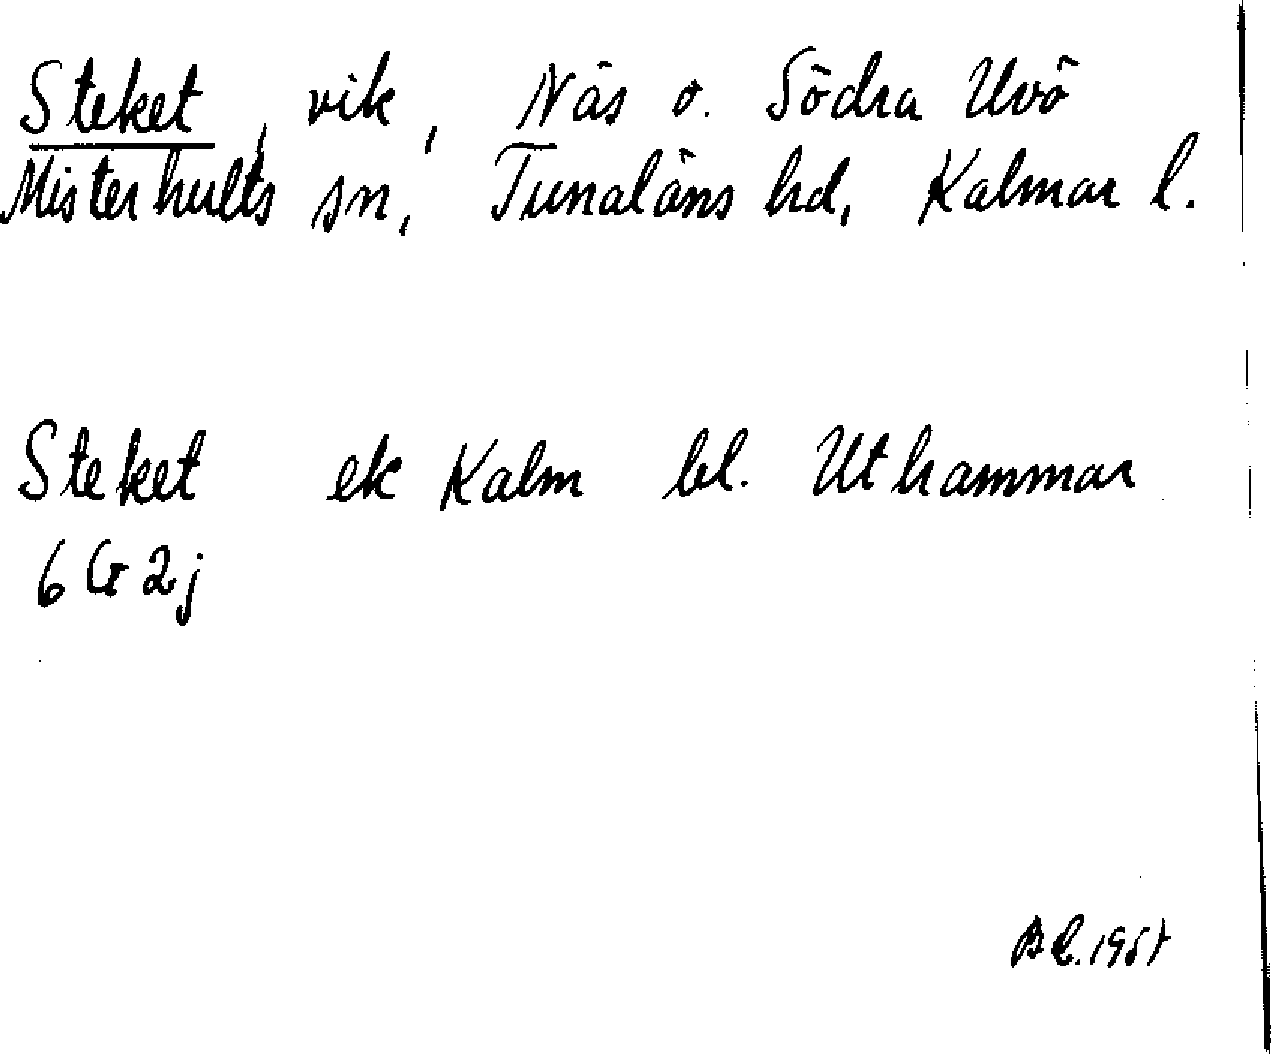 Steket, vik, Näs o. Södra Uvö
Misterhults sn, Tunaläns hd, Kalmar l.
Steket ek Kalm bl. Uthammar
6 G 2j